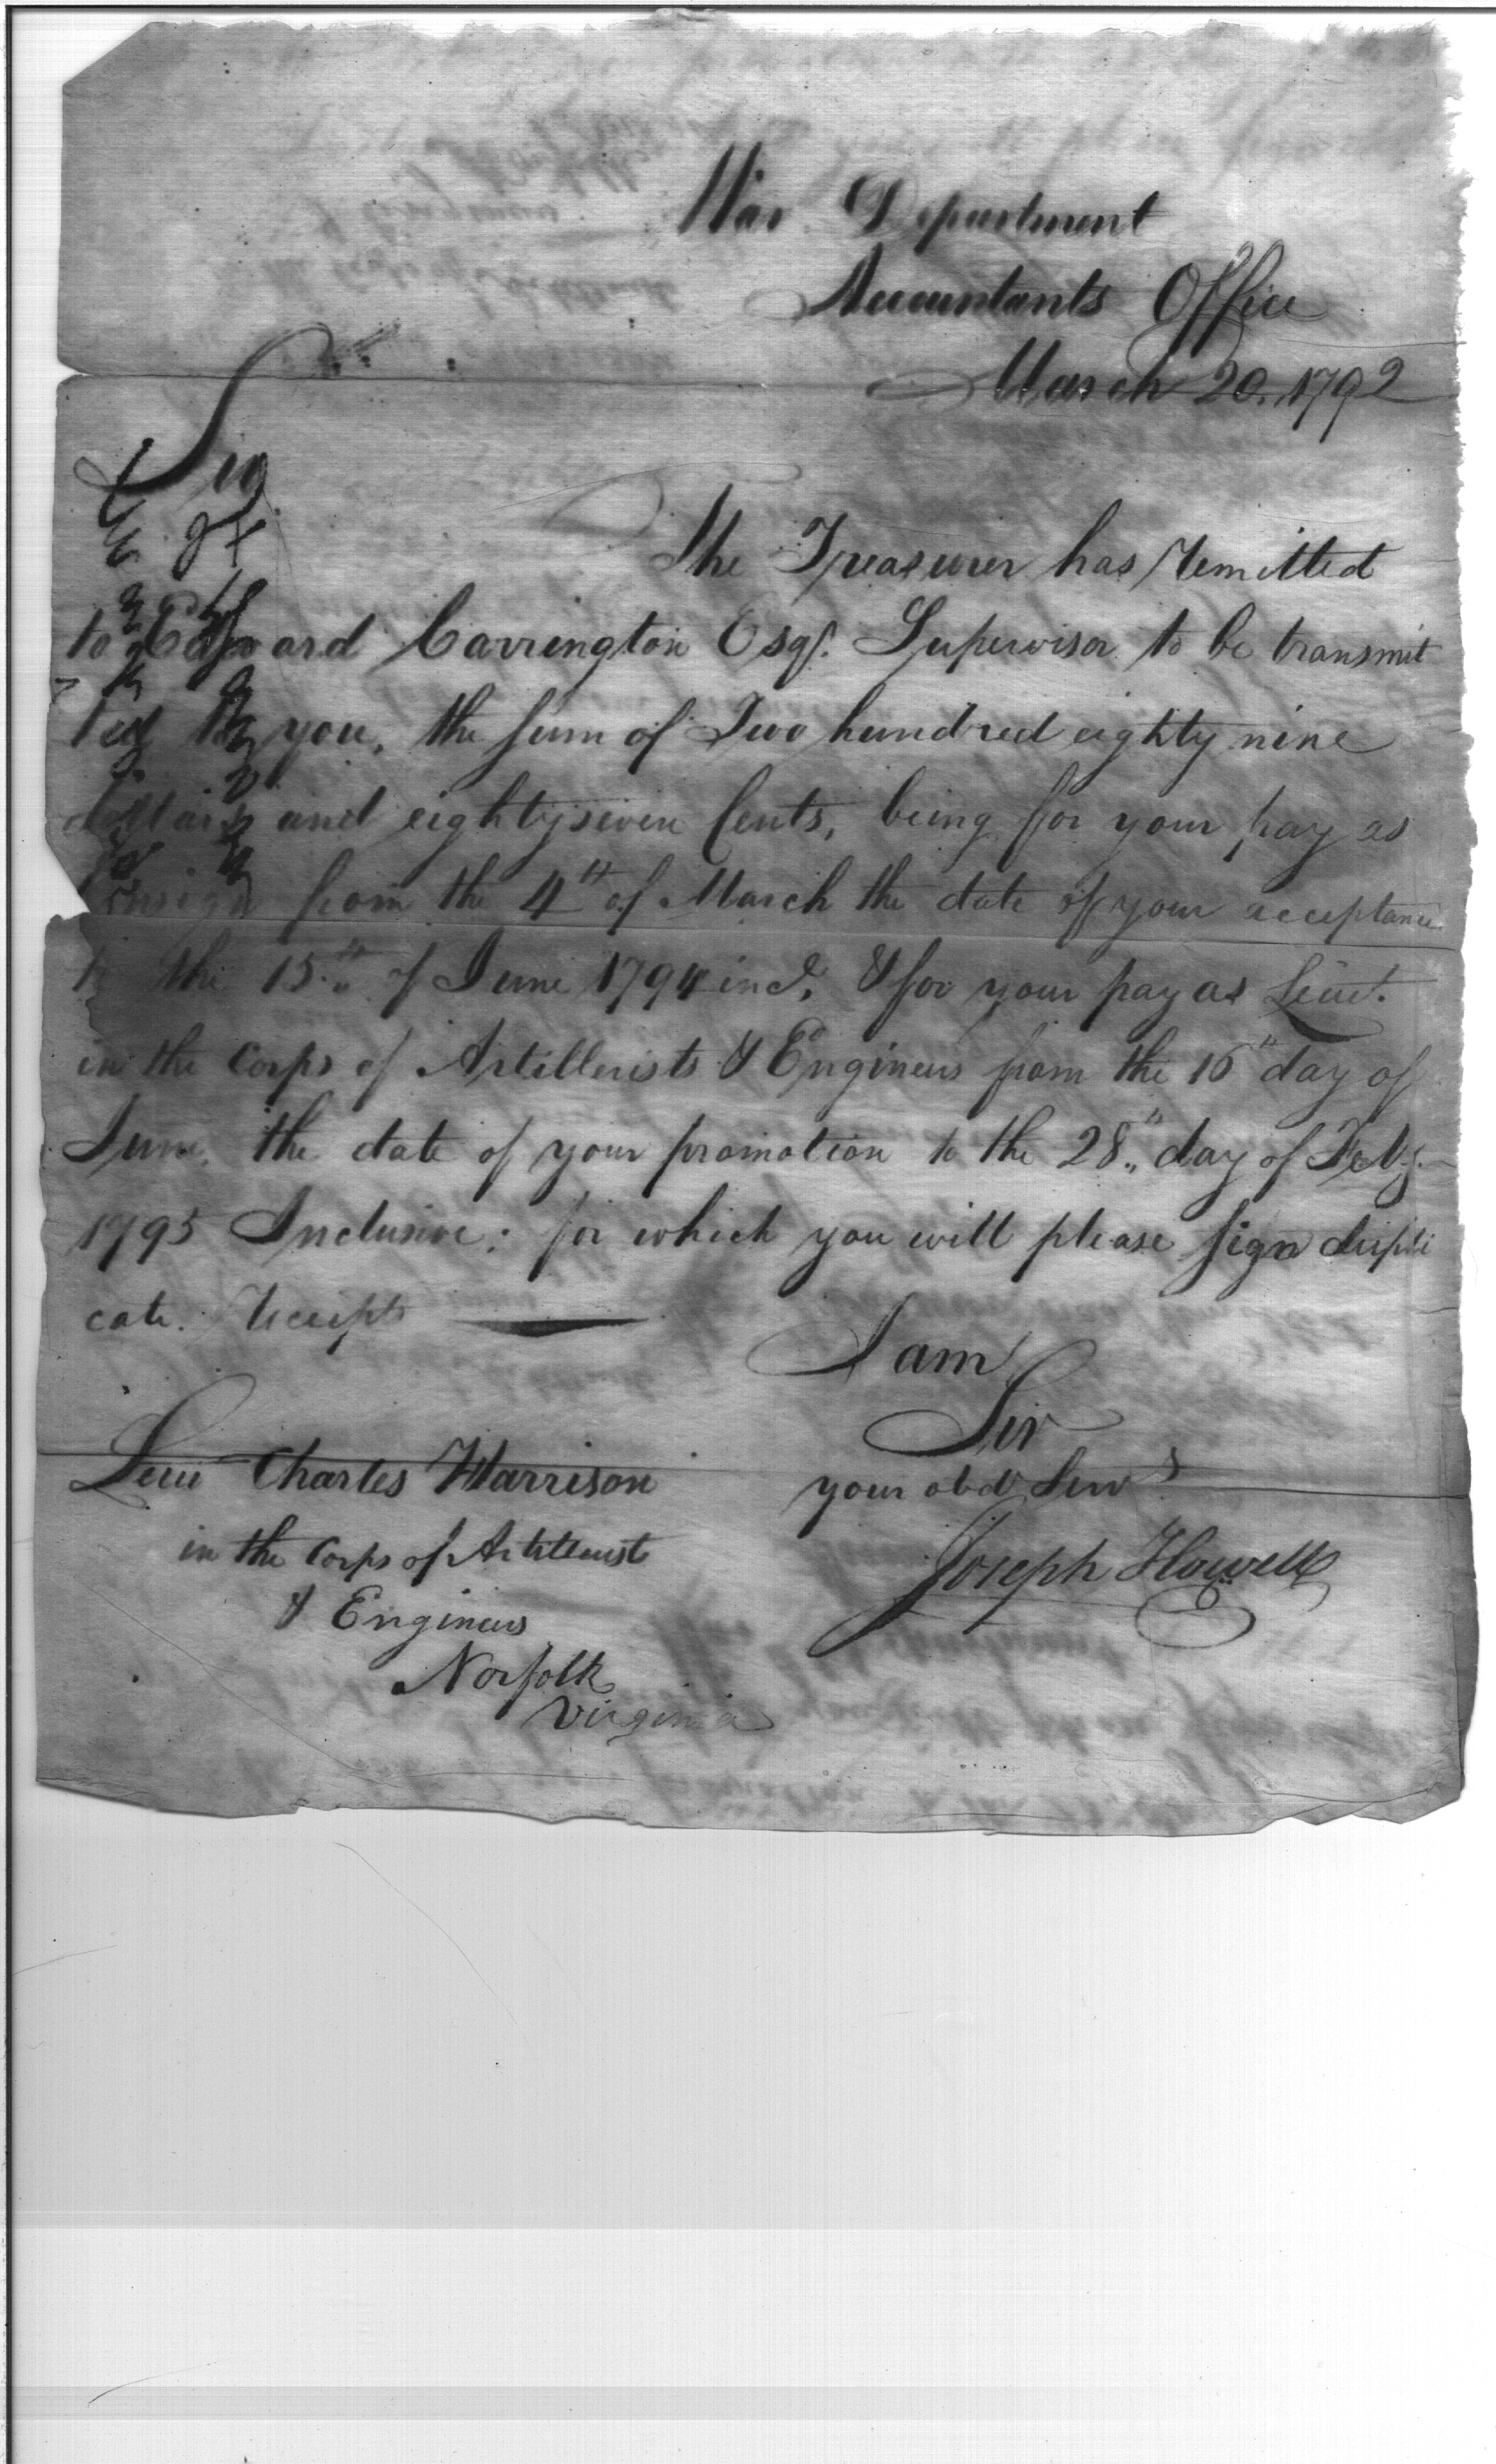 War Department
Accountants Office
March 20. 1792
Sir
The Treasurer has remitted
to Edward Carrington Esqr. Supervisor to be transmit
ted to you, the sum of Two hundred eighty nine
dollars and eighty seven Cents, being for your pay as
Ensign from the 4th of March the date of your acceptance
to the 15th of June 1794 incl. & for your pay as Lieut.
in the Corps of Artillerists & Engineers from the 16th day of
June, the date of your promotion to the 28th day of Feby.
1795 Inclusive; for which you will please sign dupli
cate Receipts
I am
Sir
your obd Servt
Joseph Howell
Lieut Charles Harrison
in the Corps of Artillerist
& Engineers
Norfolk
Virginia